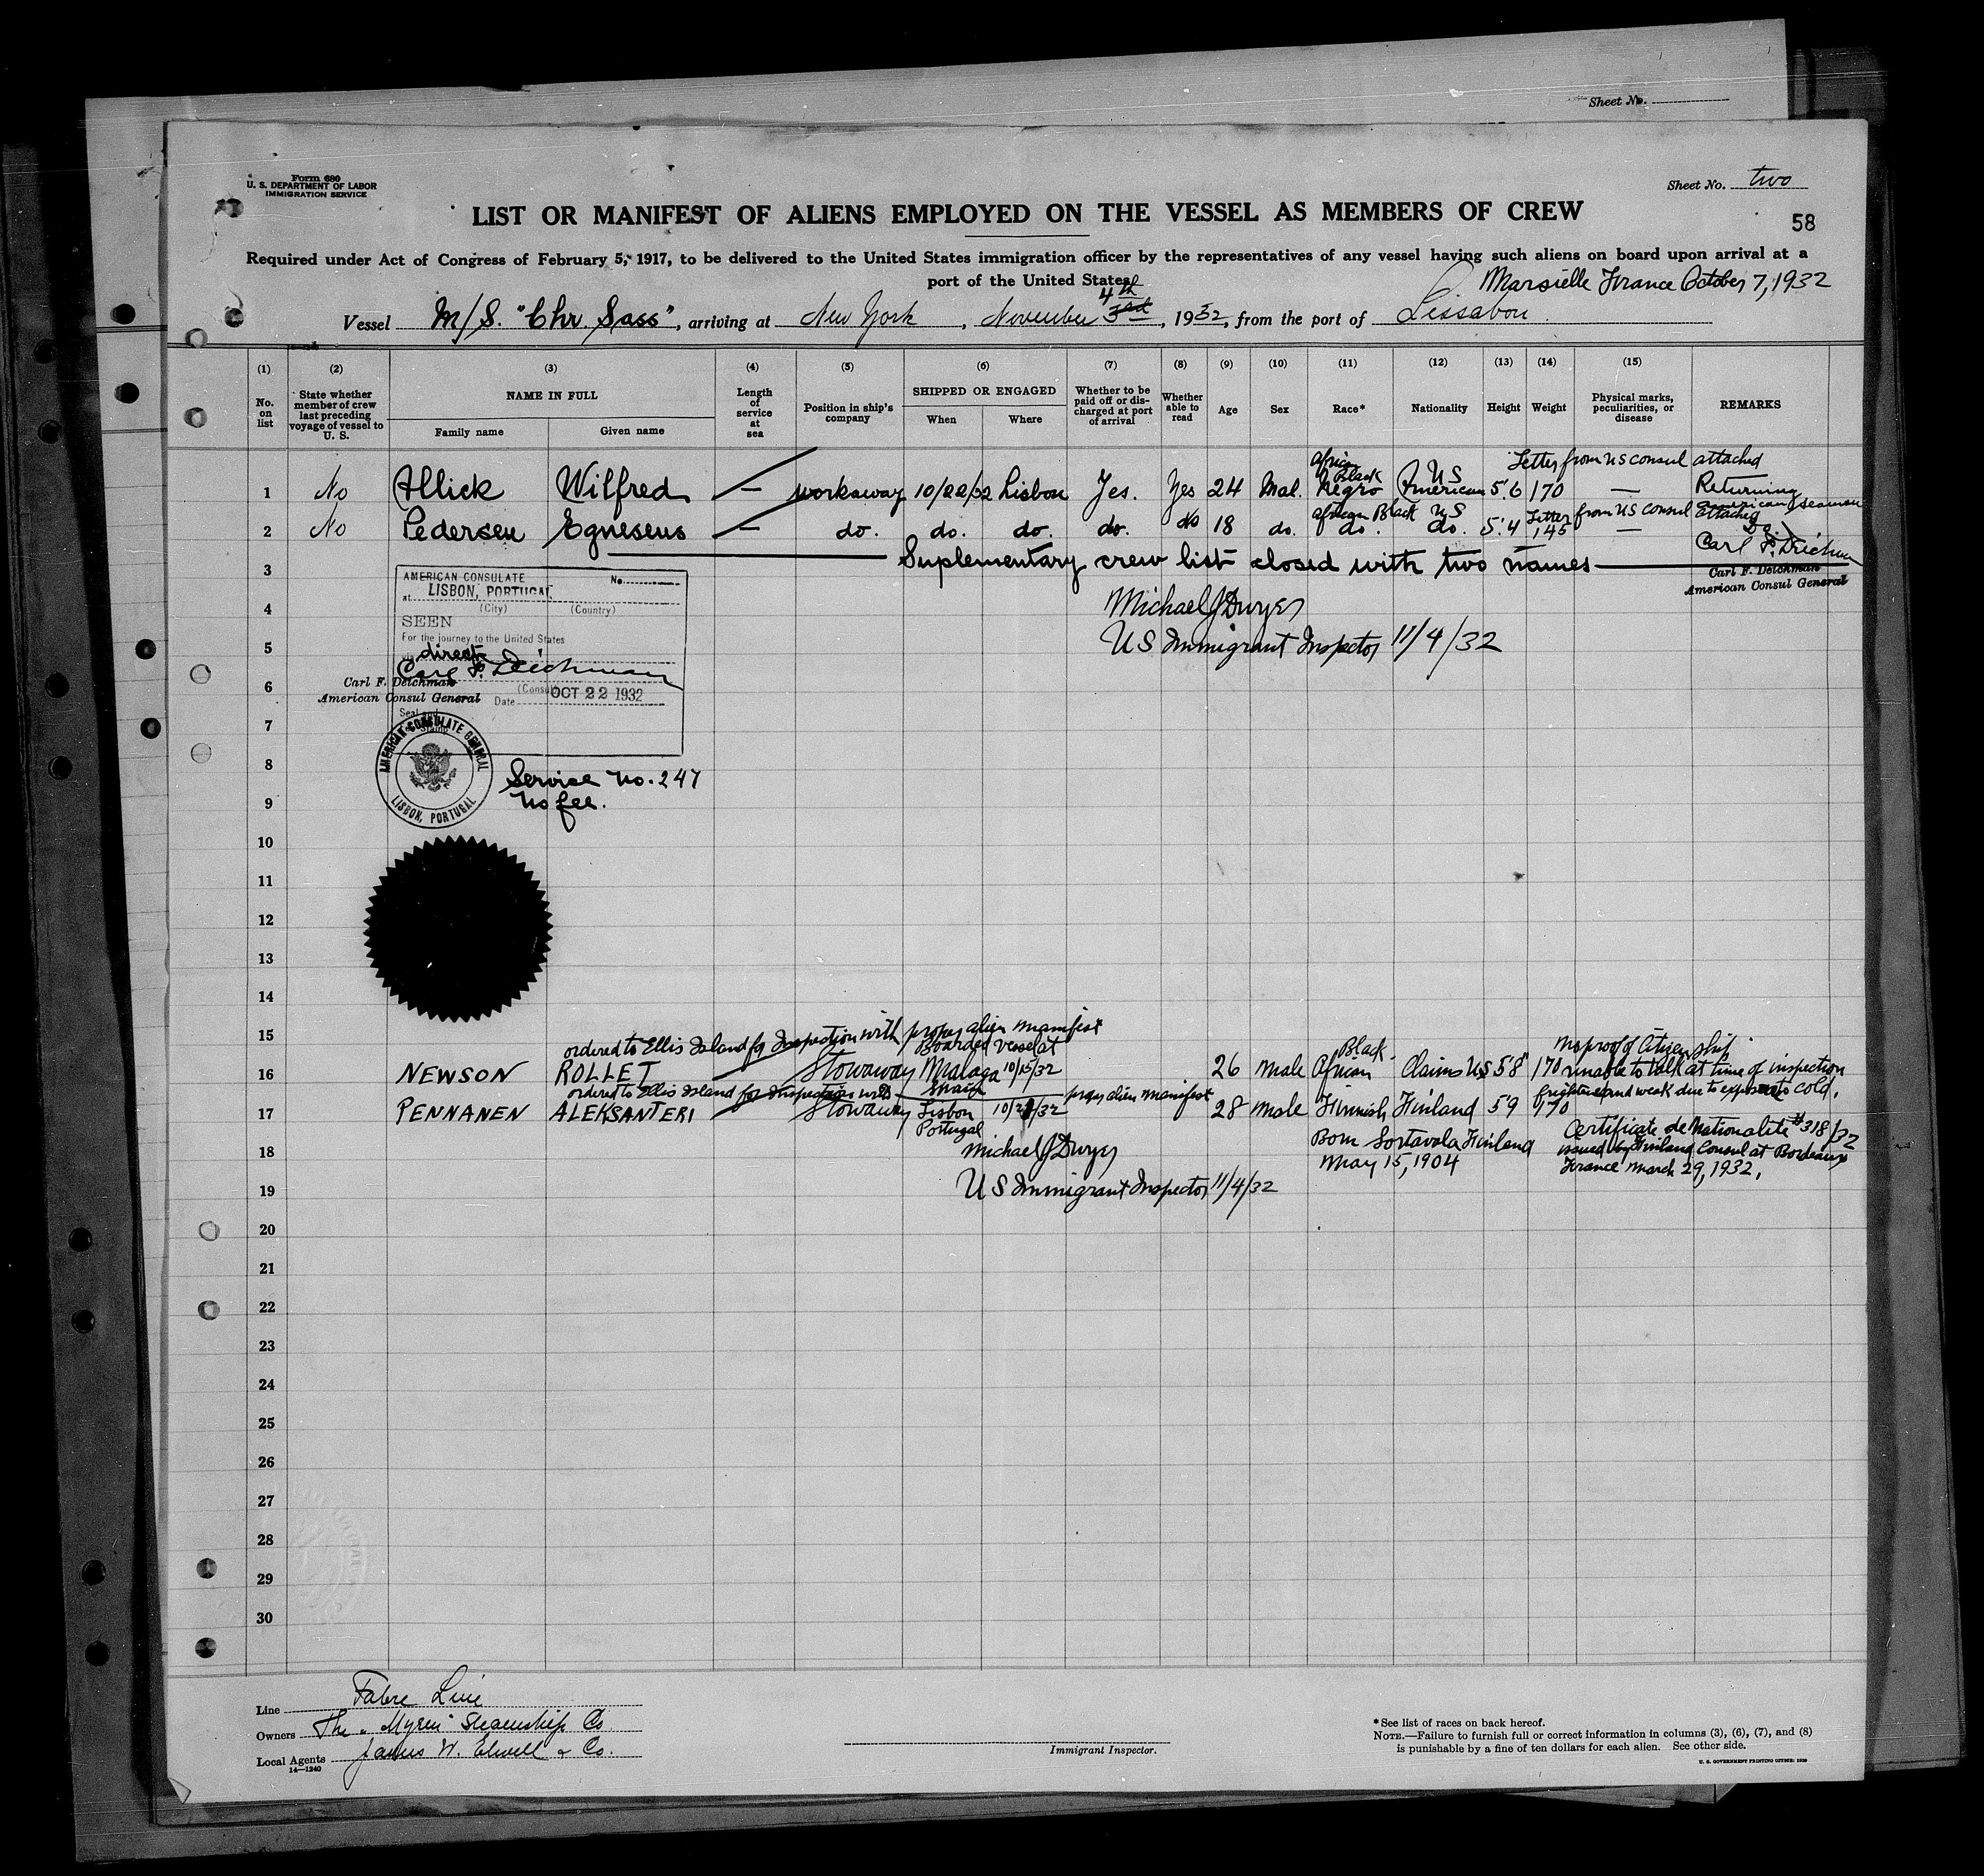 Sheet No.
Form 680
U. S. DEPARTMENT OF LABOR
IMMIGRATION SERVICE
Sheet No. two
LIST OR MANIFEST OF ALIENS EMPLOYED ON THE VESSEL AS MEMBERS OF CREW
58
Required under Act of Congress of February 5, 1917, to be delivered to the United States immigration officer by the representatives of any vessel having such aliens on board upon arrival at a
port of the United States
Marsielle France October 7, 1932
4th
Vessel M/S. "Chr. Sass", arriving at New York, November 3rd, 1932, from the port of Lissabon.
(1) (2) (3) (4) (5) (6) (7) (8) (9) (10) (11) (12) (13) (14) (15)
No. on list
State whether member of crew last preceding voyage of vessel to U. S.
NAME IN FULL
Family name
Given name
Length of service at sea
Position in ship's company
SHIPPED OR ENGAGED
When
Where
Whether to be paid off or discharged at port of arrival
Whether able to read
Age
Sex
Race*
Nationality
Height
Weight
Physical marks, peculiarities, or disease
REMARKS
African Black US Letter from US consul attached
1 No Allick Wilfred — workaway 10/22/32 Lisbon Yes. Yes 24 Mal. Negro American 5.6 170 — Returning American seaman
African Black US Letter from US Consul attached
2 No Pedersen Egnesens — do. do. do. do. do 18 do. do. do. 5.4 145 — Do.
Carl F. Deichman
3 Suplementary crew list closed with two names
Carl F. Deichman
American Consul General
AMERICAN CONSULATE No.
at LISBON, PORTUGAL
(City) (Country)
SEEN
For the journey to the United States
direct
Carl F. Deichman
Carl F. Deichman
American Consul General
(Consul)
Date OCT 22 1932
Seal and
Stamp
AMERICAN CONSULATE GENERAL
LISBON, PORTUGAL
Service No. 247
No fee.
4 Michael J Dwyer
5 US Immigrant Inspector 11/4/32
6
7
8
9
10
11
12
13
14
15
ordered to Ellis Island for Inspection with proper alien manifest
Boarded vessel at
Black. No proof of Citizenship.
16 NEWSON ROLLET Stowaway Malaga 10/15/32 26 male African Claims US 5 8" 170 unable to talk at time of inspection
Spain
frightened and weak due to exposure to cold.
ordered to Ellis Island for Inspection with proper alien manifest
17 PENNANEN ALEKSANTERI Stowaway Lisbon 10/21/32 28 male Finnish Finland 5 9 170
Portugal
Certificate de Nationalite #318/32
issued by Finland Consul at Bordeaux
France March 29, 1932.
Born Sortavala Finland
May 15, 1904
18 Michael J Dwyer
19 US Immigrant Inspector 11/4/32
20
21
22
23
24
25
26
27
28
29
30
Line Fabre Line
Owners The "Myren" Steamship Co
Local Agents James W. Elwell & Co.
14—1240
Immigrant Inspector.
*See list of races on back hereof.
NOTE.—Failure to furnish full or correct information in columns (3), (6), (7), and (8)
is punishable by a fine of ten dollars for each alien. See other side.